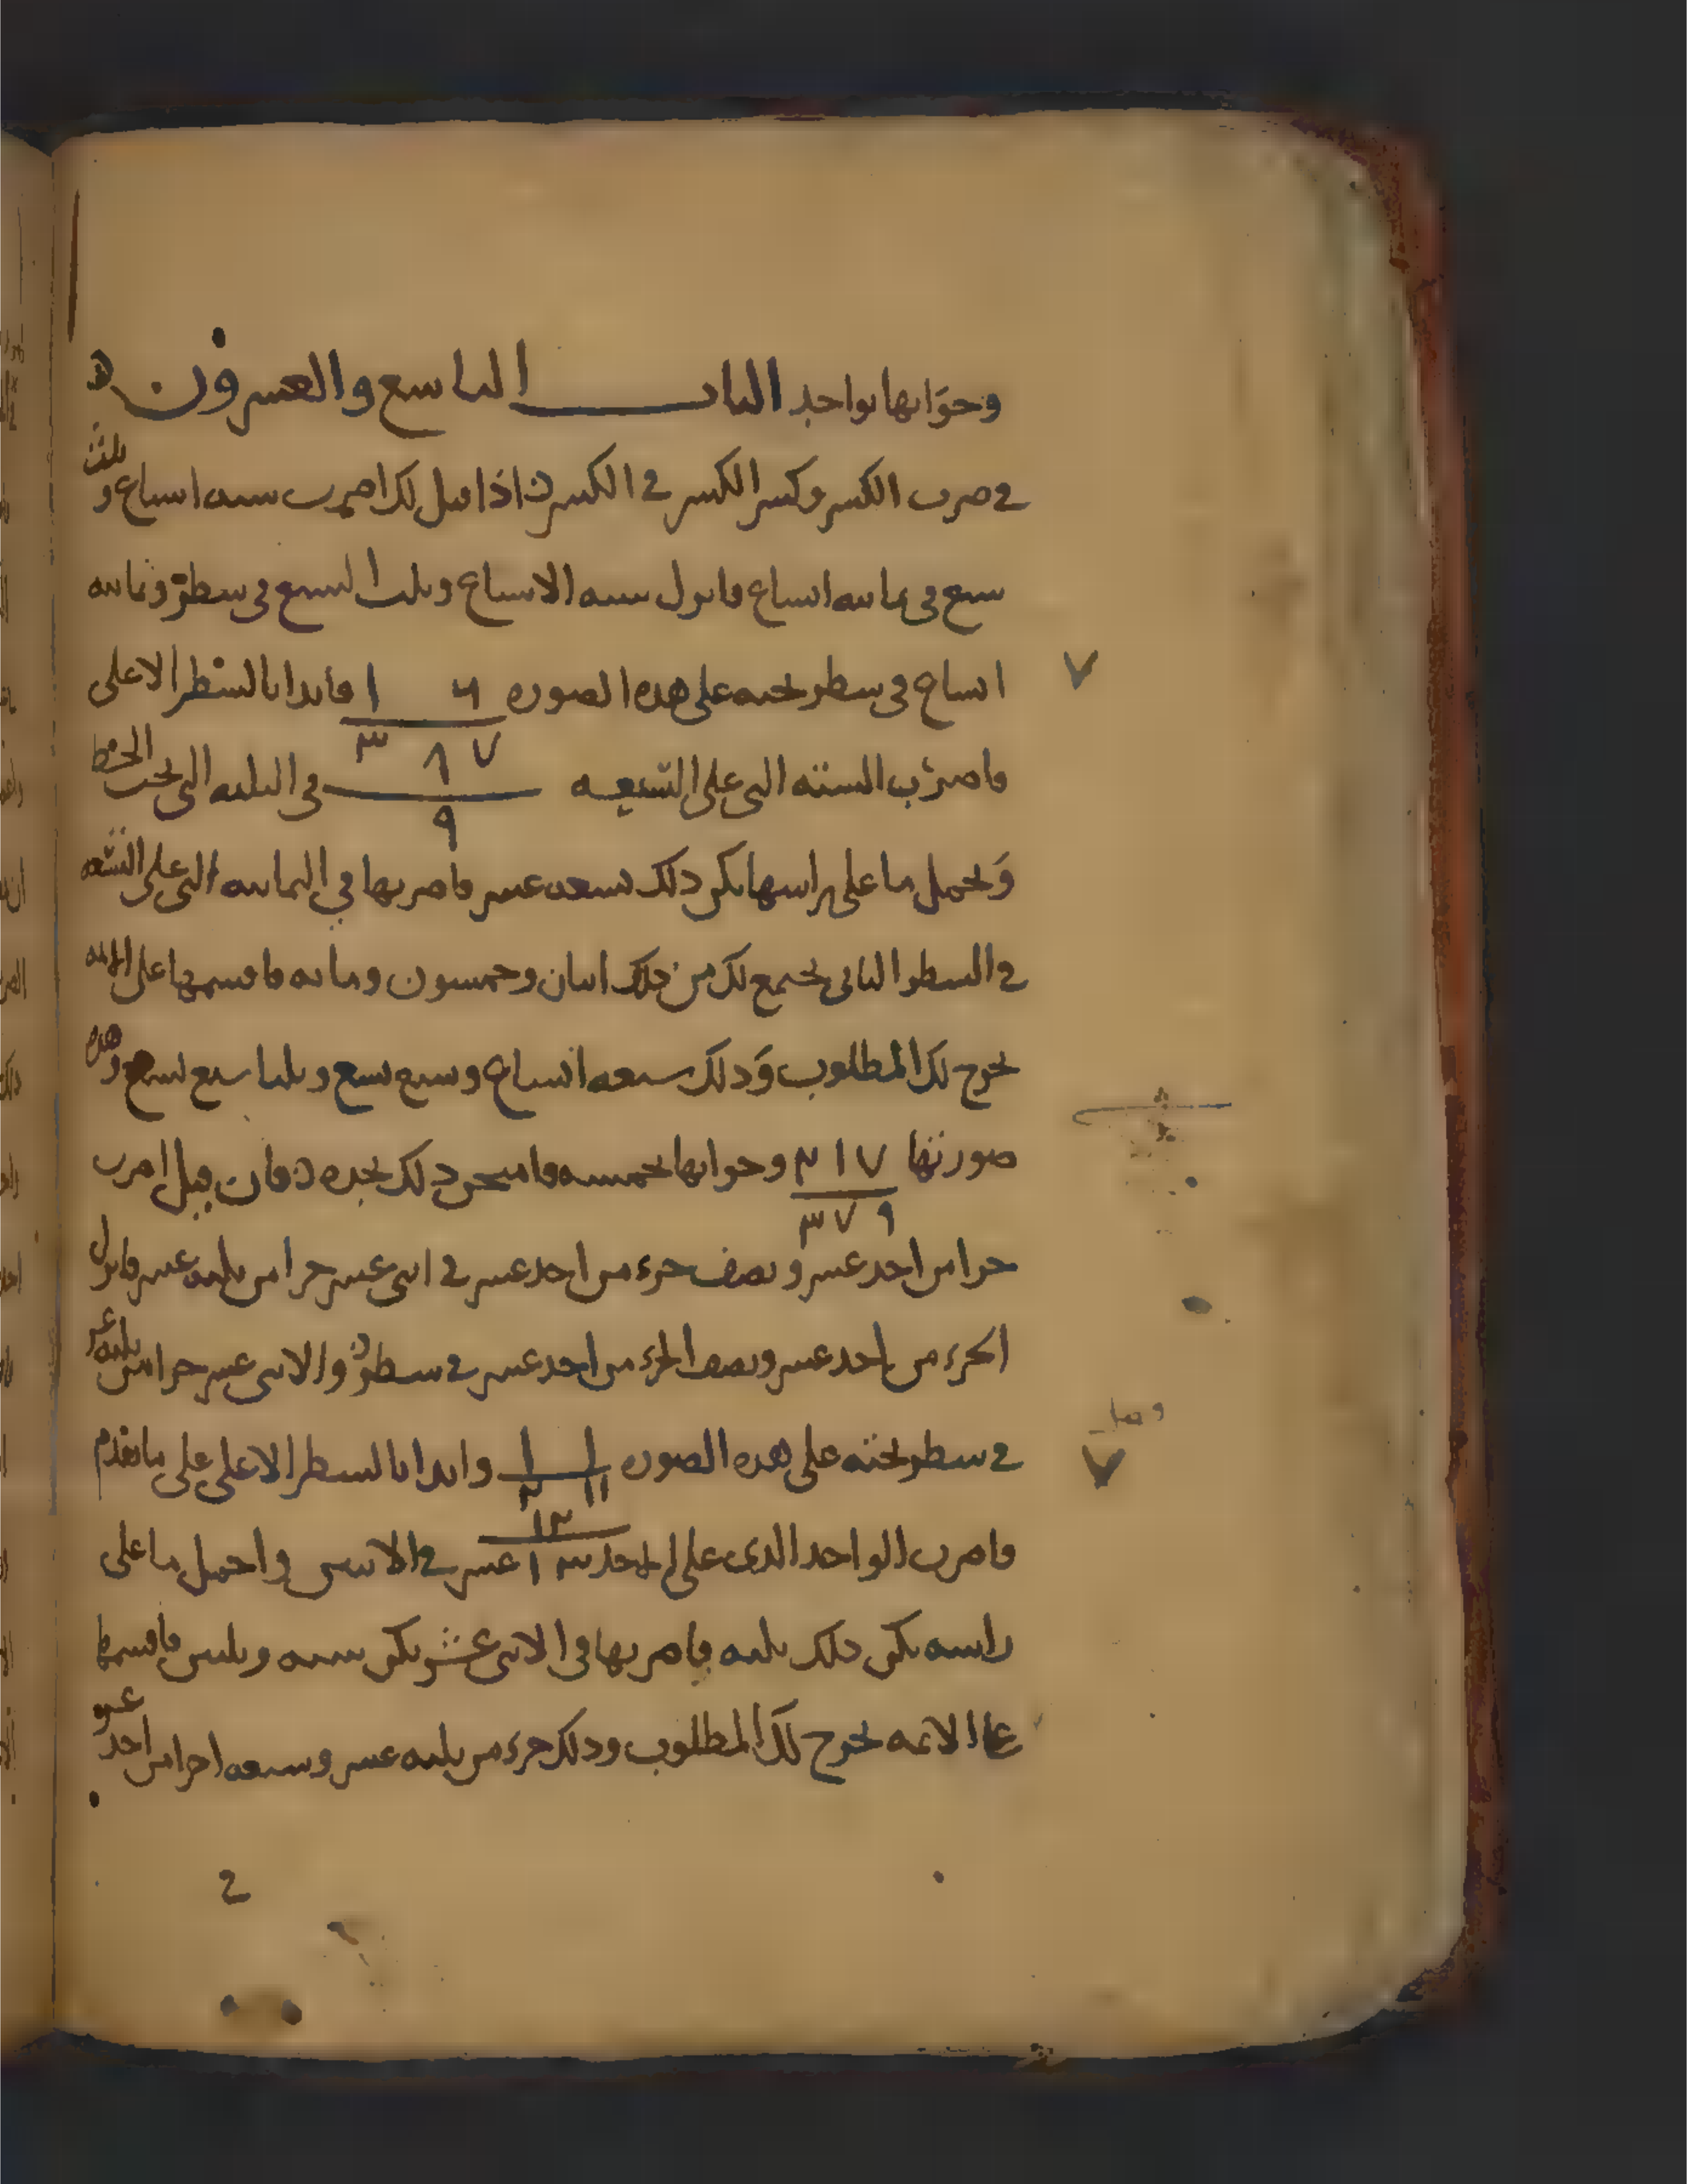 وجوابها بواحد الباب التاسع والعشرون ه
في ضرب الكسر وكسر الكسر في الكسر ن اذا قيل لك اضرب ستة اسباع وثلث
سبع في ثمانيه اتساع فانزل ستة الاسباع وثلث السبع في سطر وثمانيه
اتساع في سطر تحته على هذه الصوره ٦ ١ فابدا بالسطر الاعلى
٧ ٣
فاضرب الستة التى على السبعه ٨ في الثلثه التى تحت الخط
٩
وتحمل ما على راسها يكن ذلك تسعه عشر فاضربها في الثمانيه التى على التسعه
في السطر الثانى يجتمع لك من ذلك اثنان وخمسون ومايه فاقسمها على الايمه
يخرج لك المطلوب وذلك سبعه اتساع وسبع تسع وثلثا سبع تسع وهذه
صورتها ٧ ١ ٢ وجوابها بخمسه فامتحن ذلك تجده ن فان قيل اضرب
٩ ٧ ٣
جزا من احد عشر ونصف جزء من احد عشر في اثنى عشر جزا من ثلثه عشر فانزل
الجزء من احد عشر ونصف الجزء من احد عشر في سطر والاثنى عشر جزا من ثلثه عشر
في سطر تحته على هذه الصوره ١ ١ وابدا بالسطر الاعلى على ما تقدم
١١ ٢
١٢
فاضرب الواحد الذى على الاحد ١٣ عشر في الاثنين واحمل ما على
راسه يكن ذلك ثلثه فاضربها في الاثنى عشر يكن سته وثلثين فاقسمها
على الايمه يخرج لك المطلوب وذلك جزء من ثلثه عشر وسبعه اجزا من احد عشر